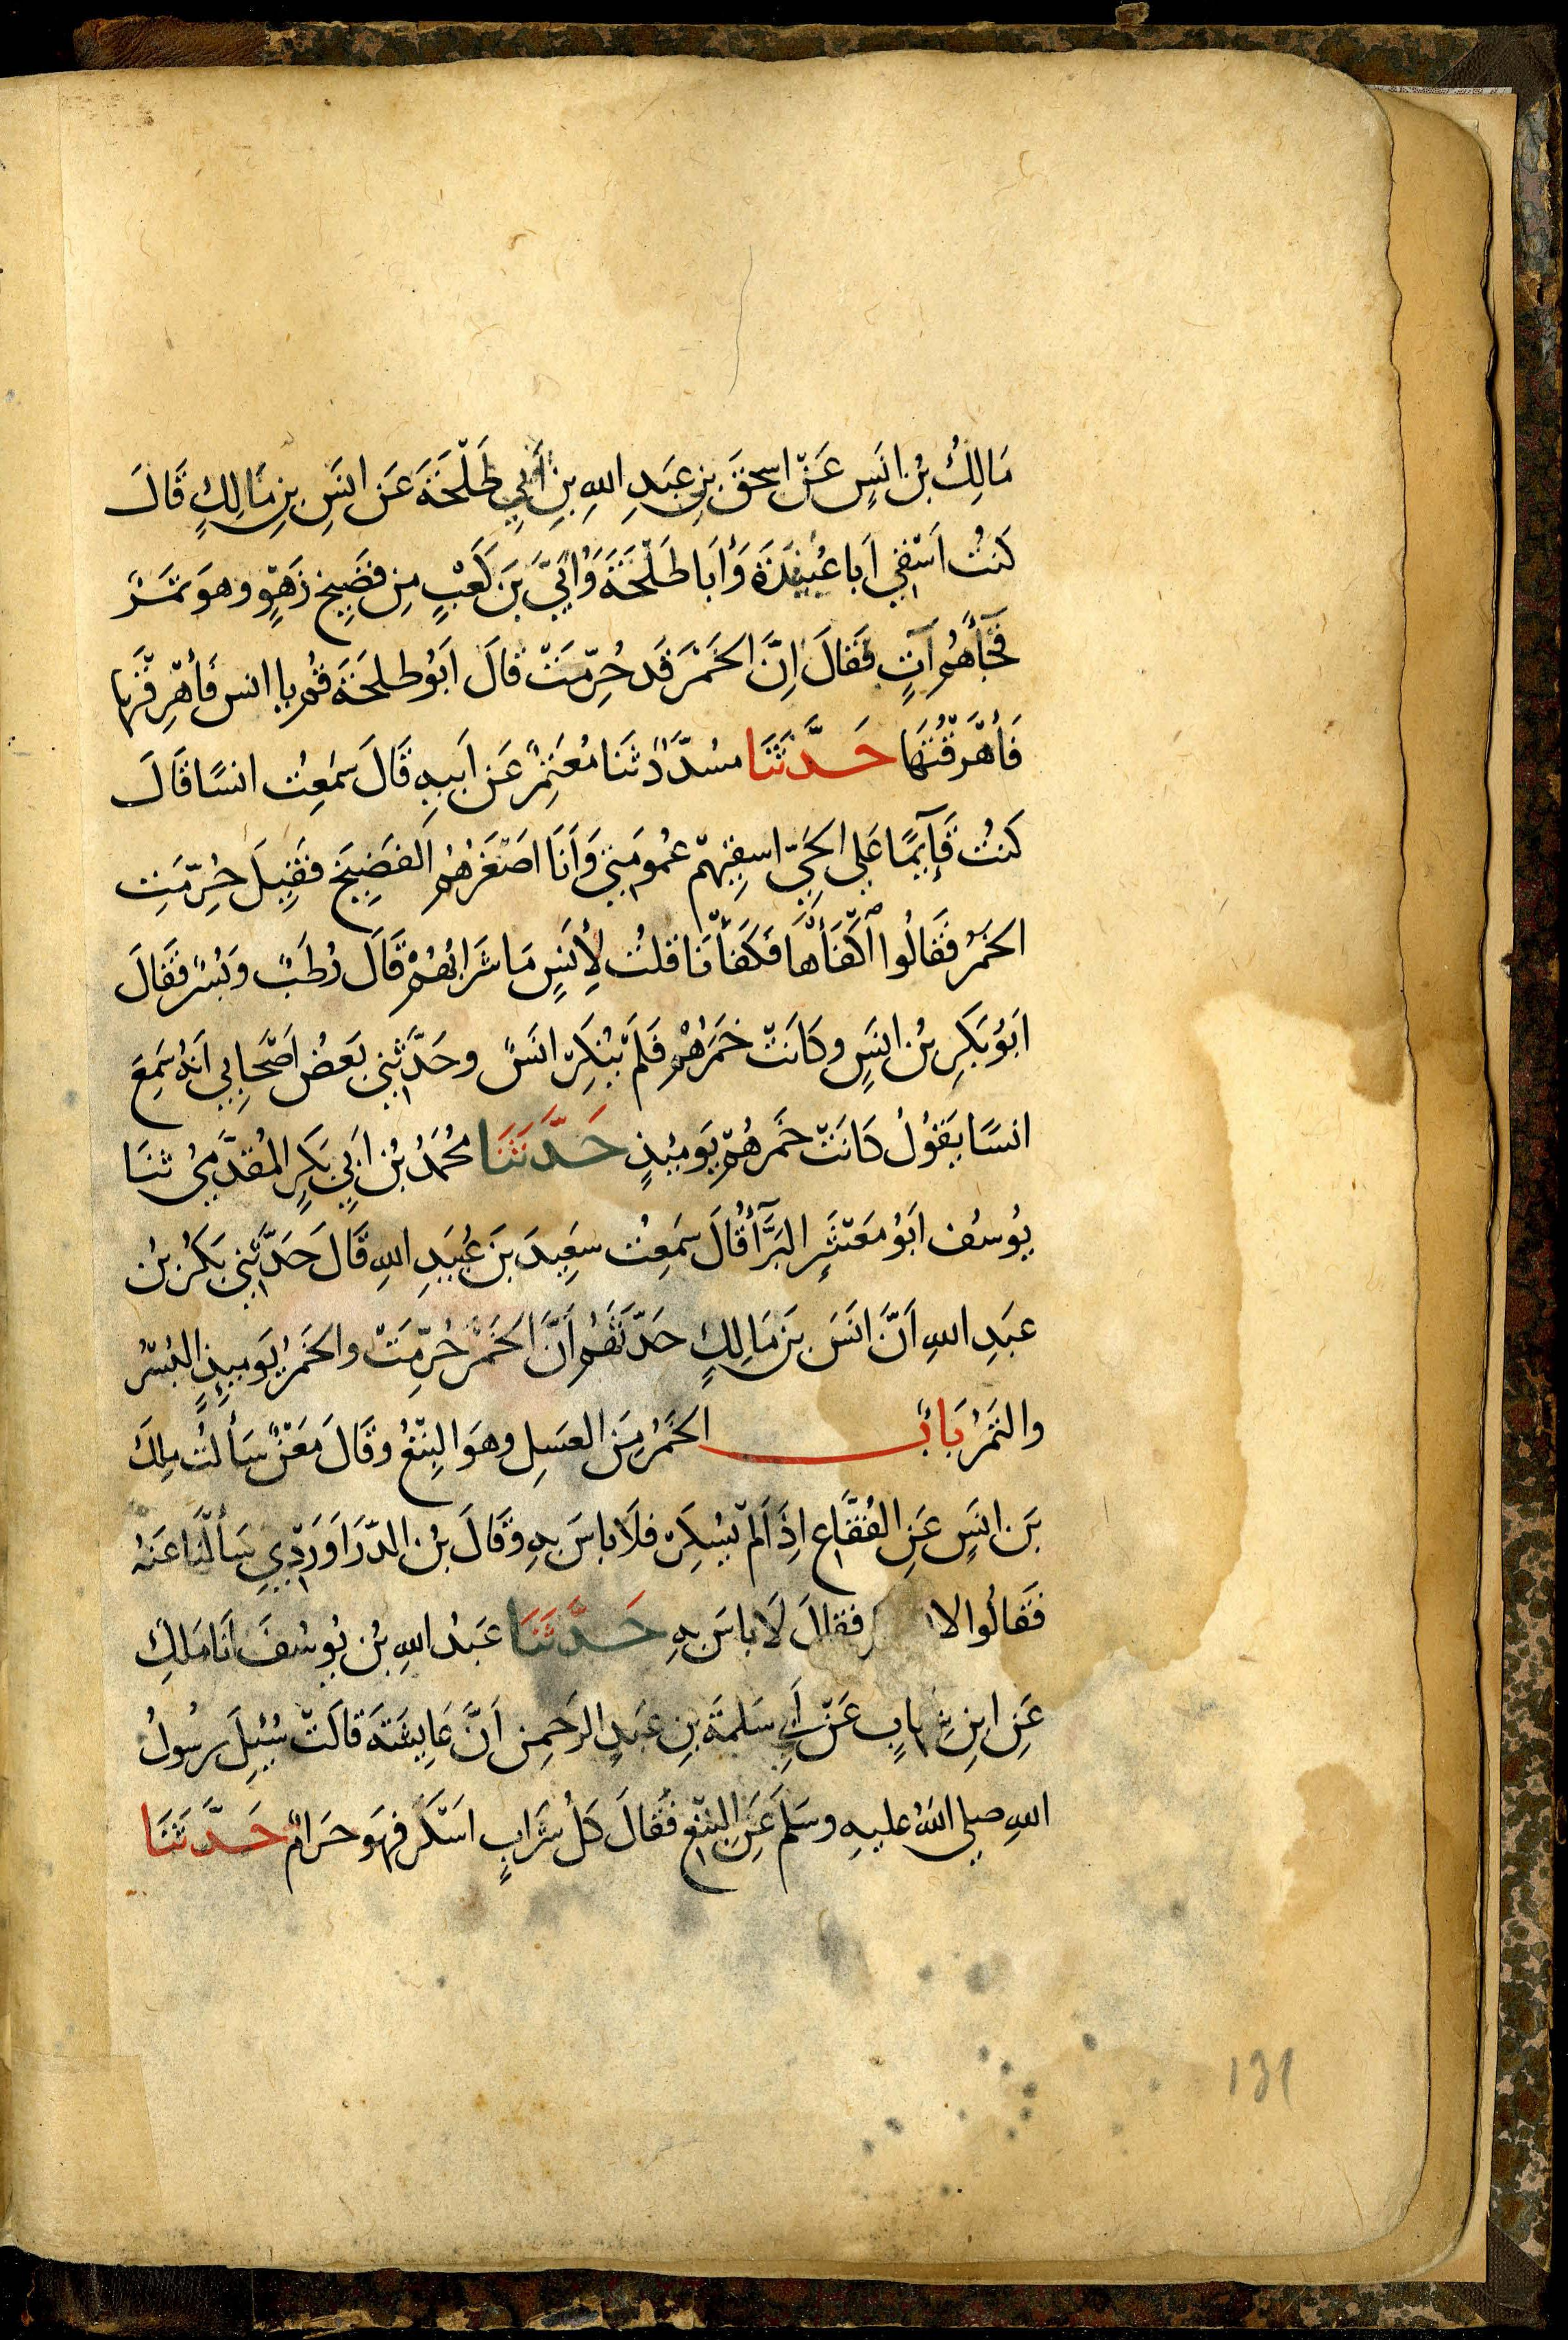 مَالِكُ بْنُ انَسٍ عَنْ اسحقَ بنِ عَبدِ اللهِ بنِ أَبِي طَلْحَةَ عَن انَسِ بنِ مَالِكٍ قَالَ
كَنتُ اَسْقي اَبا عُبَيْدَةَ وَأَبَا طَلْحَةَ وَأُبَيَّ بنَ كَعْبٍ مِن فَضِيخ زَهْوٍ وهوَ تمَرٌ
فَجَآءَهُم آتٍ فَقَالَ اِنَّ الخَمْرَ قَد حُرِّمَتْ قَالَ اَبُو طلحَةَ قُم يا انس فَأهْرِقْها
فَأهْرَقْتُهَا حَدَّثَنَا مسُدَّدٌ ثَنَا مُعْتَمِرٌ عَن اَبيهِ قَالَ سَمَعِتُ انسًا قَالَ
كَنتُ قَآئِمًا عَلى الحَيِّ اسقِيهِمْ عُمومَتي وَأَنَا اصَغَرُهُم الفَضِيخَ فقِيلَ حُرِّمَتِ
الخمَرُ فقَالُوا اَكْفَأهَّا فكَفَأنَا قلتُ لِأنَسٍ مَا شَرابُهُمْ قَالَ رُطَبٌ وَبُسْرٌ فقَالَ
ابَوُ بَكَرِ بْنُ انسٍ وكَانَتْ خمَرَهُمْ فَلَمْ يُنكِرْ انَسٌ وحَدَّثني بَعضُ اصْحَابِي اَنهُ سَمِعَ
انسًا يَقوُلُ كَانَتْ خَمرهُمْ يَومِئِذٍ حَدَّثَنَا مُحمَدُ بْنُ ابَيِ بَكرٍ المُقدَّميُ ثنَا
يوُسُف ابَوُ مَعْشَرٍ البَرَّآءُ قالَ سَمِعتُ سَعِيدَ بنَ عُبَيدِ اللهِ قَالَ حَدَّثَنِي بَكَرُ بْنُ
عبَدِ اللهِ اَنَّ انَسَ بنَ مَالِكٍ حَدّثَهُم أَنَّ الخَمْرَ حُرِّمَتْ والخَمرُ يَومَئِذٍ البُسْرُ
والتَمْرُ بَابُ الخَمْرُ مِنَ العسَلِ وهوَ البِتْعُ وقَالَ مَعْنٌ سَأَلتُ ملِكَ
بنَ انسٍ عَنِ الفُقَّاعِ اذِ اَلَم يُسْكِرْ فلَا باسَ بهِ وقَالَ بنُ الدّرَاوَرْدِيِ سَألْنَا عَنْهُ
فقَالُوا لا فقالَ لَا باسَ بهِ حَدَّثَنَا عَبَدُ اللهِ بْنُ يوُسُفَ انَا مَالِكٌ
عَنِ ابنِ شهابٍ عَنْ أَبِي سَلمَةَ بنِ عبَدِ الرحَمِن اَنَّ عَايشَةَ قالَتْ سُئِلَ رسُولُ
اللهِ صلي اللهُ عليهِ وسَلمَ عَنِ البِتْعِ فقَالَ كلُ شرَابٍ اسَكَرَ فهوَ حَرَامٌ حَدَّثَنَا
131